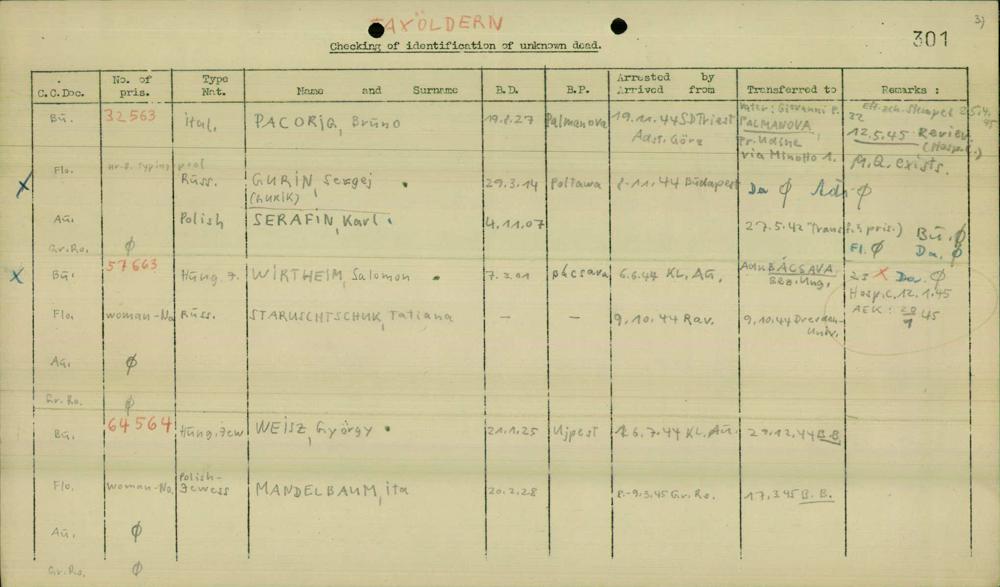 SAXÖLDERN
3)
301
Checking of identification of unknown dead.
C.C.Doc. No. of pris. Type Nat. Name and Surname B.D. B.P. Arrested by Arrived from Transferred to Remarks :
Bu. 32563 ital. PACORIG, Bruno 19.8.27 Palmanova 19.11.44 SD Triest Adst. Görz
Vater: Giovanni P.
PALMANOVA,
Pr. Udine
via Minotto 1.
22 45
12.5.45 Revier
(Hosp.)
M.Q. exists.
Flo. typing pool
Russ. GURIN, Sergej 29.3.14 Poltawa 8.11.44 Budapest Da ϕ Adr ϕ
Au. Polish SERAFIN, Karl 4.11.07 27.5.42 Bu. ϕ
Gr.Ro. ϕ Fl. ϕ Da. ϕ
X Bu. 57663 Hung. J. WIRTHEIM, Salomon 7.2.01 6.6.44 KL. Au. BÁCSAVA
Bez. Ung.
23 X Da. ϕ
Hosp.C. 12.1.45
AEK: 45
Flo. woman-No Russ. STARUSCHTSCHUK, Tatiana – – 9.10.44 Rav. 9.10.44 Dresden-
Univ.
Au. ϕ
Gr.Ro. ϕ
Bu. 64564 Hung. Jew WEISZ, György 21.1.25 Ujpest 16.7.44 KL. Au. 29.12.44 B.B
Flo. woman-No. Polish-
Jewess MANDELBAUM, ita 20.2.28 8.-9.3.45 Gr.Ro. 17.3.45 B.B.
Au. ϕ
Gr.Ro. ϕ